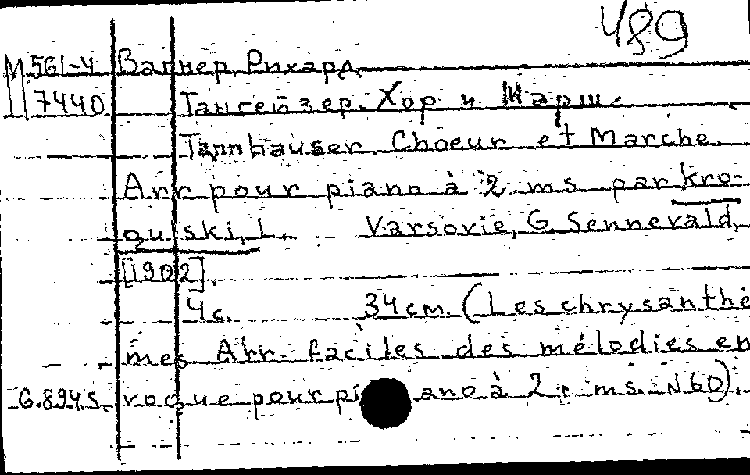 489
М 561-4 Вагнер, Рихард.
7440 Тангейзер. Хор и Марш.
Tannhauser. Choeur et Marche.
Arr pour piano à 2 ms par Kro-
gulski, L. Varsovie, G. Sennewald,
[1902].
4с. 34cm. (Les chrysanthè
mes Arr. faciles des mélodies en
G.894S. vogue pour piano à 2 ms. N60).